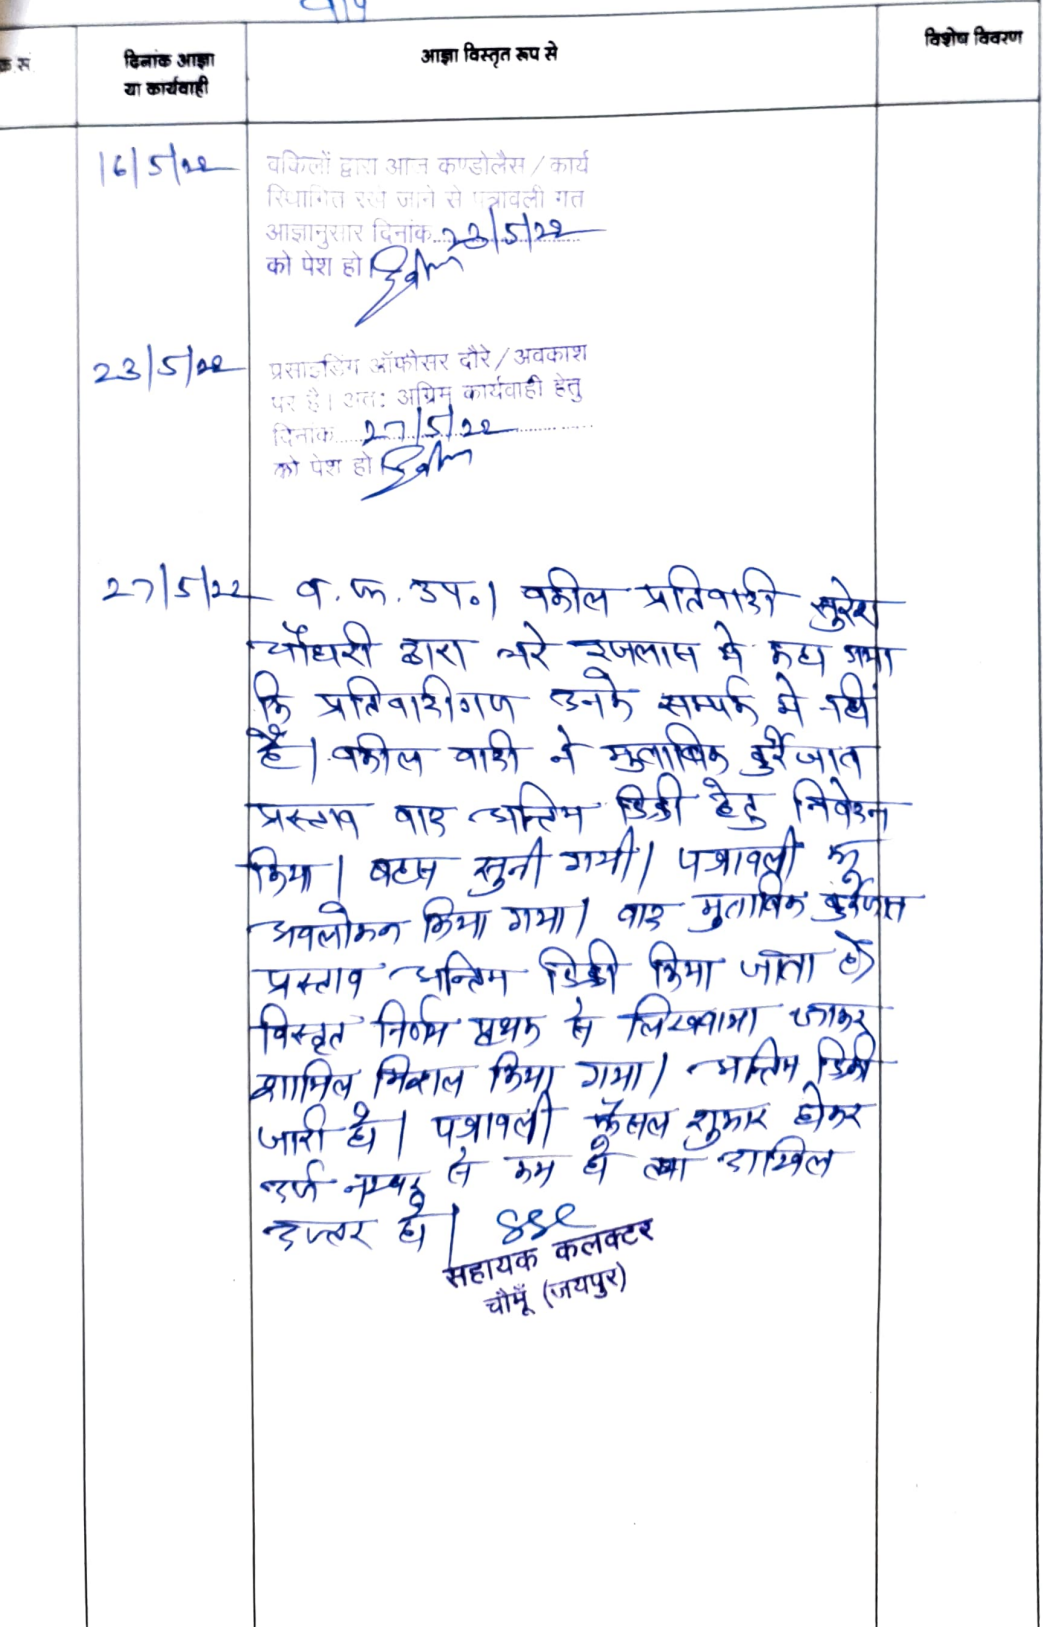 क्र.सं.
दिनांक आज्ञा
या कार्यवाही
आज्ञा विस्तृत रूप से
विशेष विवरण
16/5/22
वकिलों द्वारा आज कण्डोलैस / कार्य
स्थिगित रखे जाने से पत्रावली गत
आज्ञानुसार दिनांक 23/5/22
को पेश हो
23/5/22
प्रसाइडिंग ऑफीसर दौरे / अवकाश
पर है। अतः अग्रिम कार्यवाही हेतु
दिनांक 27/5/22
को पेश हो
27/5/22
व. फ. उप.। वकील प्रतिवादी सुरेश
चौधरी द्वारा भरे इजलास मे कहा गया
कि प्रतिवादीगण उनके सम्पर्क मे नही
है। वकील वादी ने मुताबिक कुर्रेजात
प्रस्ताव वाद अन्तिम डिक्री हेतु निवेदन
किया। बहस सुनी गयी। पत्रावली का
अवलोकन किया गया। वाद मुताबिक कुर्रेजात
प्रस्ताव अन्तिम डिक्री किया जाता है
विस्तृत निर्णय पृथक से लिखवाया जाकर
शामिल मिसल किया गया। अन्तिम डिक्री
जारी हो। पत्रावली फैसल शुमार होकर
दर्ज नम्बर से कम हो तथा दाखिल
दफ्तर हो।
सहायक कलक्टर
चौमूँ (जयपुर)